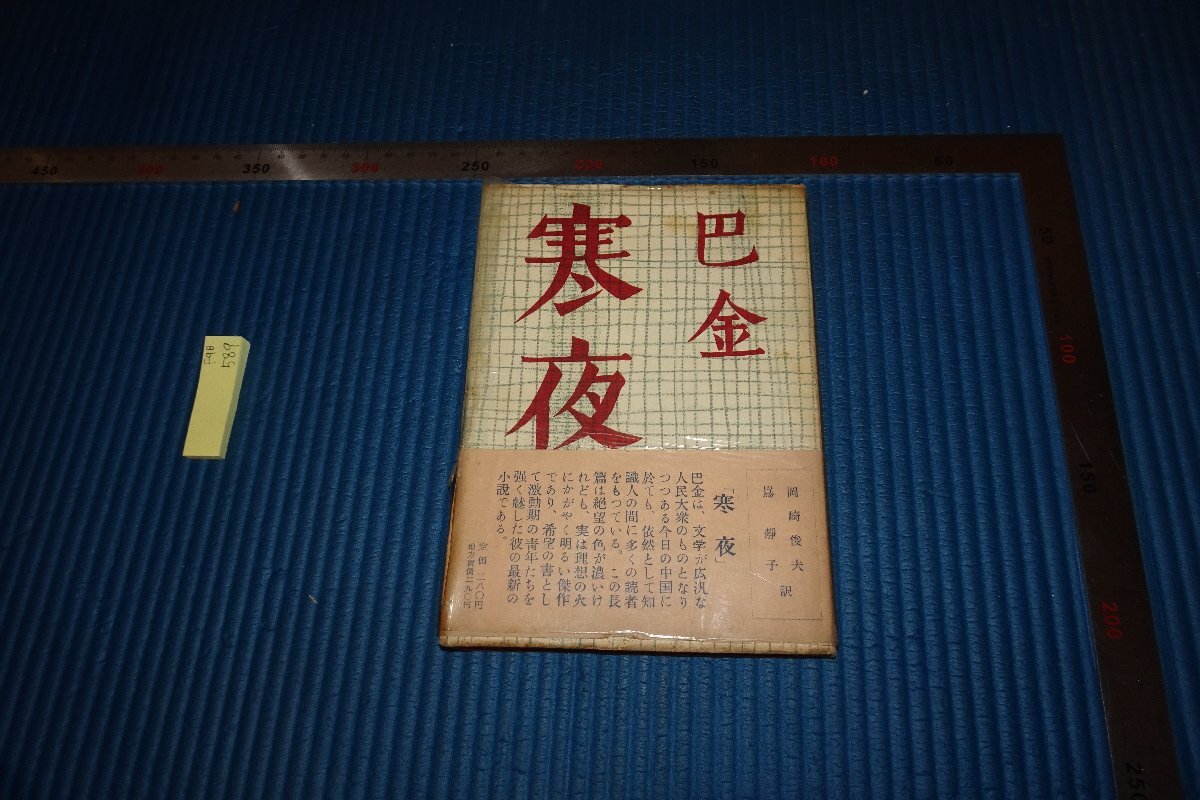 450 400 350 300 250 200 150 100 50
50
100
150
200
250
589
巴金
寒夜
岡崎俊夫
嶌靜子 訳
「寒夜」
巴金は、文学が広汎な
人民大衆のものとなり
つつある今日の中国に
於ても、依然として知
識人の間に多くの読者
をもつている。この長
篇は絶望の色が濃いけ
れども、実は理想の火
にかがやく明るい傑作
であり、希望の書とし
て激動期の青年たちを
強く魅した彼の最新の
小説である。
定価 二八〇円
地方賣價二九〇円